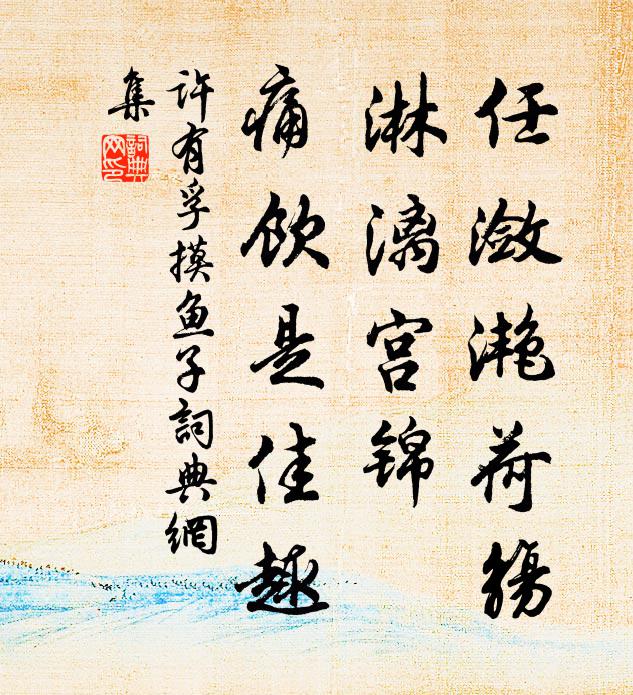 任潋滟荷觞
淋漓宫锦
痛饮是佳趣
许有孚摸鱼子詞典網
集
詞典网印